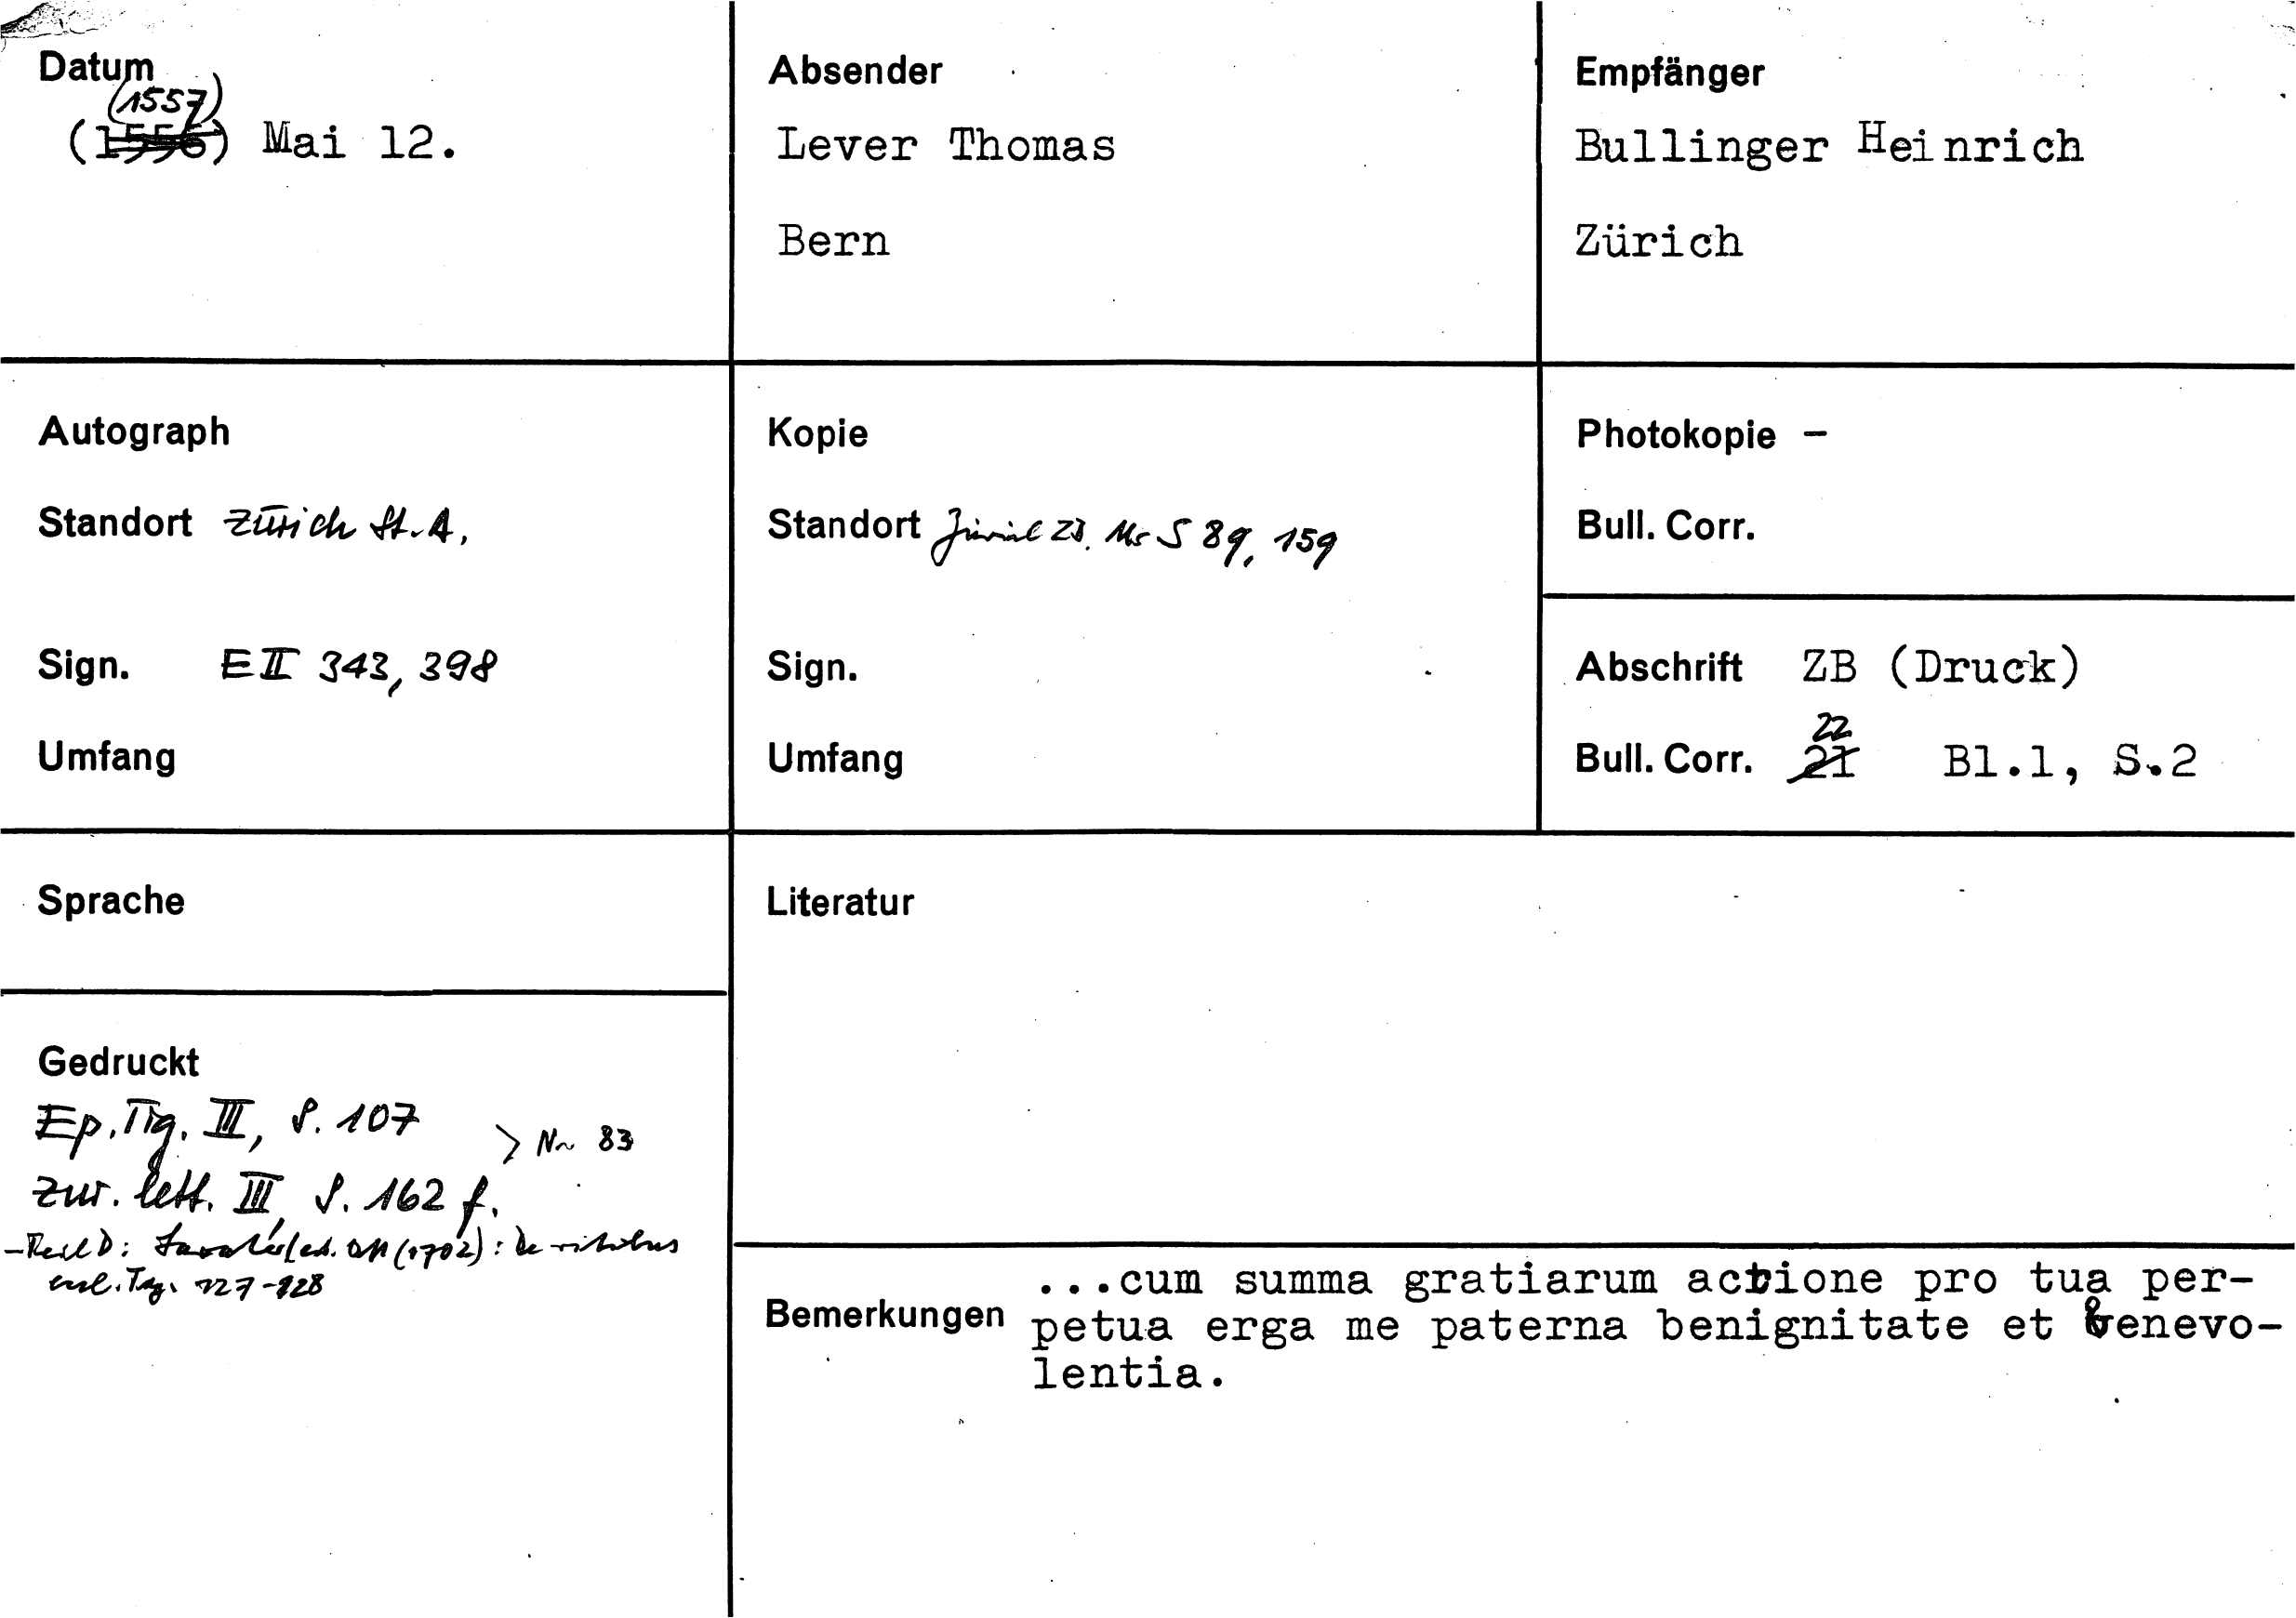 Datum
(1557)
(1556) Mai 12.
Absender
Lever Thomas
Bern
Empfänger
Bullinger Heinrich
Zürich
Autograph
Standort Zürich St.A.
Sign. E II 343, 398
Umfang
Kopie
Standort Zürich ZB. Ms S 89, 159
Sign.
Umfang
Photokopie –
Bull. Corr.
Abschrift ZB (Druck)
22
Bull. Corr. 21 Bl.1, S.2
Sprache
Gedruckt
Ep. Tig. III, S. 107
> Nr 83
Zur. lett. III, S. 162 f.
(1702): De ritibus
Literatur
Bemerkungen
...cum summa gratiarum actione pro tua per-
petua erga me paterna benignitate et benevo-
lentia.